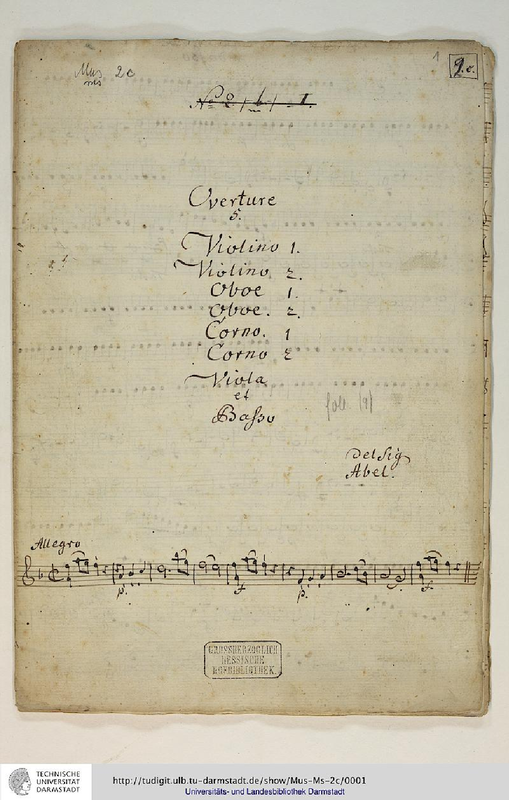 Mus 2c
ms
1
2c.
Overture
5.
Violino 1.
Violino 2.
Oboe 1.
Oboe. 2.
Corno. 1
Corno 2
Viola
et
Basso
foll (9)
Del Sig
Abel.
Allegro
p.
f
p.
f
GROSSHERZOGLICH
HESSISCHE
HOFBIBLIOTHEK.
TECHNISCHE
UNIVERSITÄT
DARMSTADT
http://tudigit.ulb.tu-darmstadt.de/show/Mus-Ms-2c/0001
Universitäts- und Landesbibliothek Darmstadt